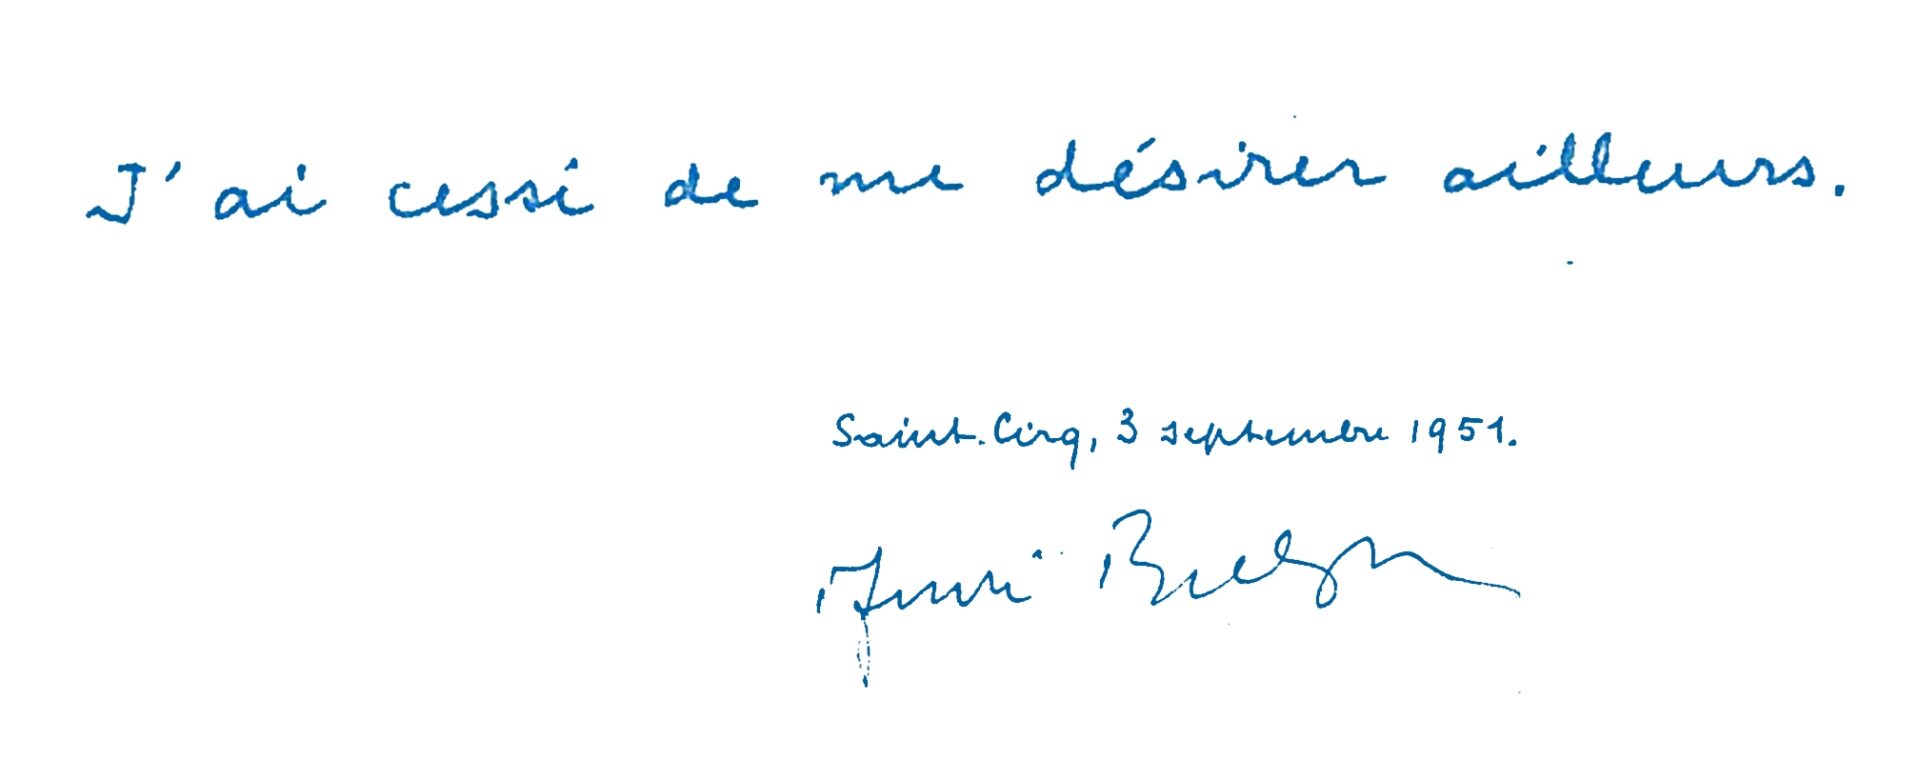 J'ai cessé de me désirer ailleurs.
Saint-Cirq, 3 septembre 1951.
André Breton